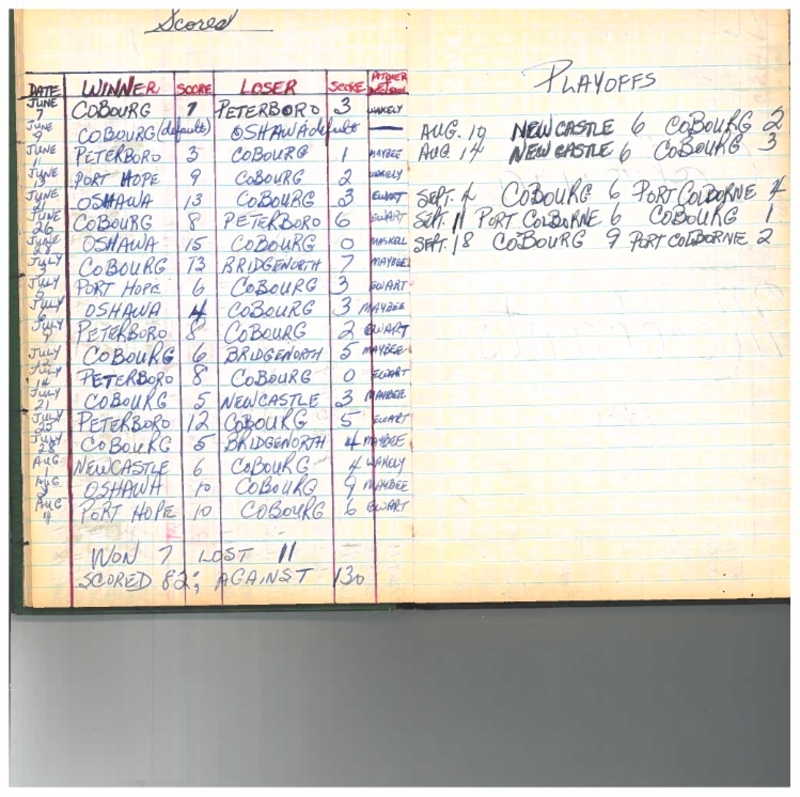 Scored
DATE WINNER SCORE LOSER SCORE PITCHER
JUNE 7 COBOURG 7 PETERBORO 3 WAKELY
JUNE 9 COBOURG (default) OSHAWA default —
JUNE 11 PETERBORO 3 COBOURG 1 MAYBEE
JUNE PORT HOPE 9 COBOURG 2 WAKELY
JUNE 21 OSHAWA 13 COBOURG 3 EWART
JUNE 26 COBOURG 8 PETERBORO 6 EWART
JUNE 28 OSHAWA 15 COBOURG 0 MASKELL
JULY 3 COBOURG 13 BRIDGENORTH 7 MAYBEE
JULY 5 PORT HOPE 6 COBOURG 3 EWART
JULY 6 OSHAWA 4 COBOURG 3 MAYBEE
JULY 9 PETERBORO 8 COBOURG 2 EWART
JULY 12 COBOURG 6 BRIDGENORTH 5 MAYBEE
JULY 14 PETERBORO 8 COBOURG 0 EWART
JULY 21 COBOURG 5 NEWCASTLE 3 MAYBEE
JULY 25 PETERBORO 12 COBOURG 5 EWART
JULY 28 COBOURG 5 BRIDGENORTH 4 MAYBEE
AUG 1 NEWCASTLE 6 COBOURG 4 WAKELY
AUG 3 OSHAWA 10 COBOURG 9 MAYBEE
AUG 4 PORT HOPE 10 COBOURG 6 EWART
WON 7 LOST 11
SCORED 82; AGAINST 130
PLAYOFFS
AUG. 10 NEWCASTLE 6 COBOURG 2
AUG 14 NEWCASTLE 6 COBOURG 3
SEPT. 4 COBOURG 6 PORT COLBORNE 4
SEPT. 11 PORT COLBORNE 6 COBOURG 1
SEPT. 18 COBOURG 9 PORT COLBORNE 2